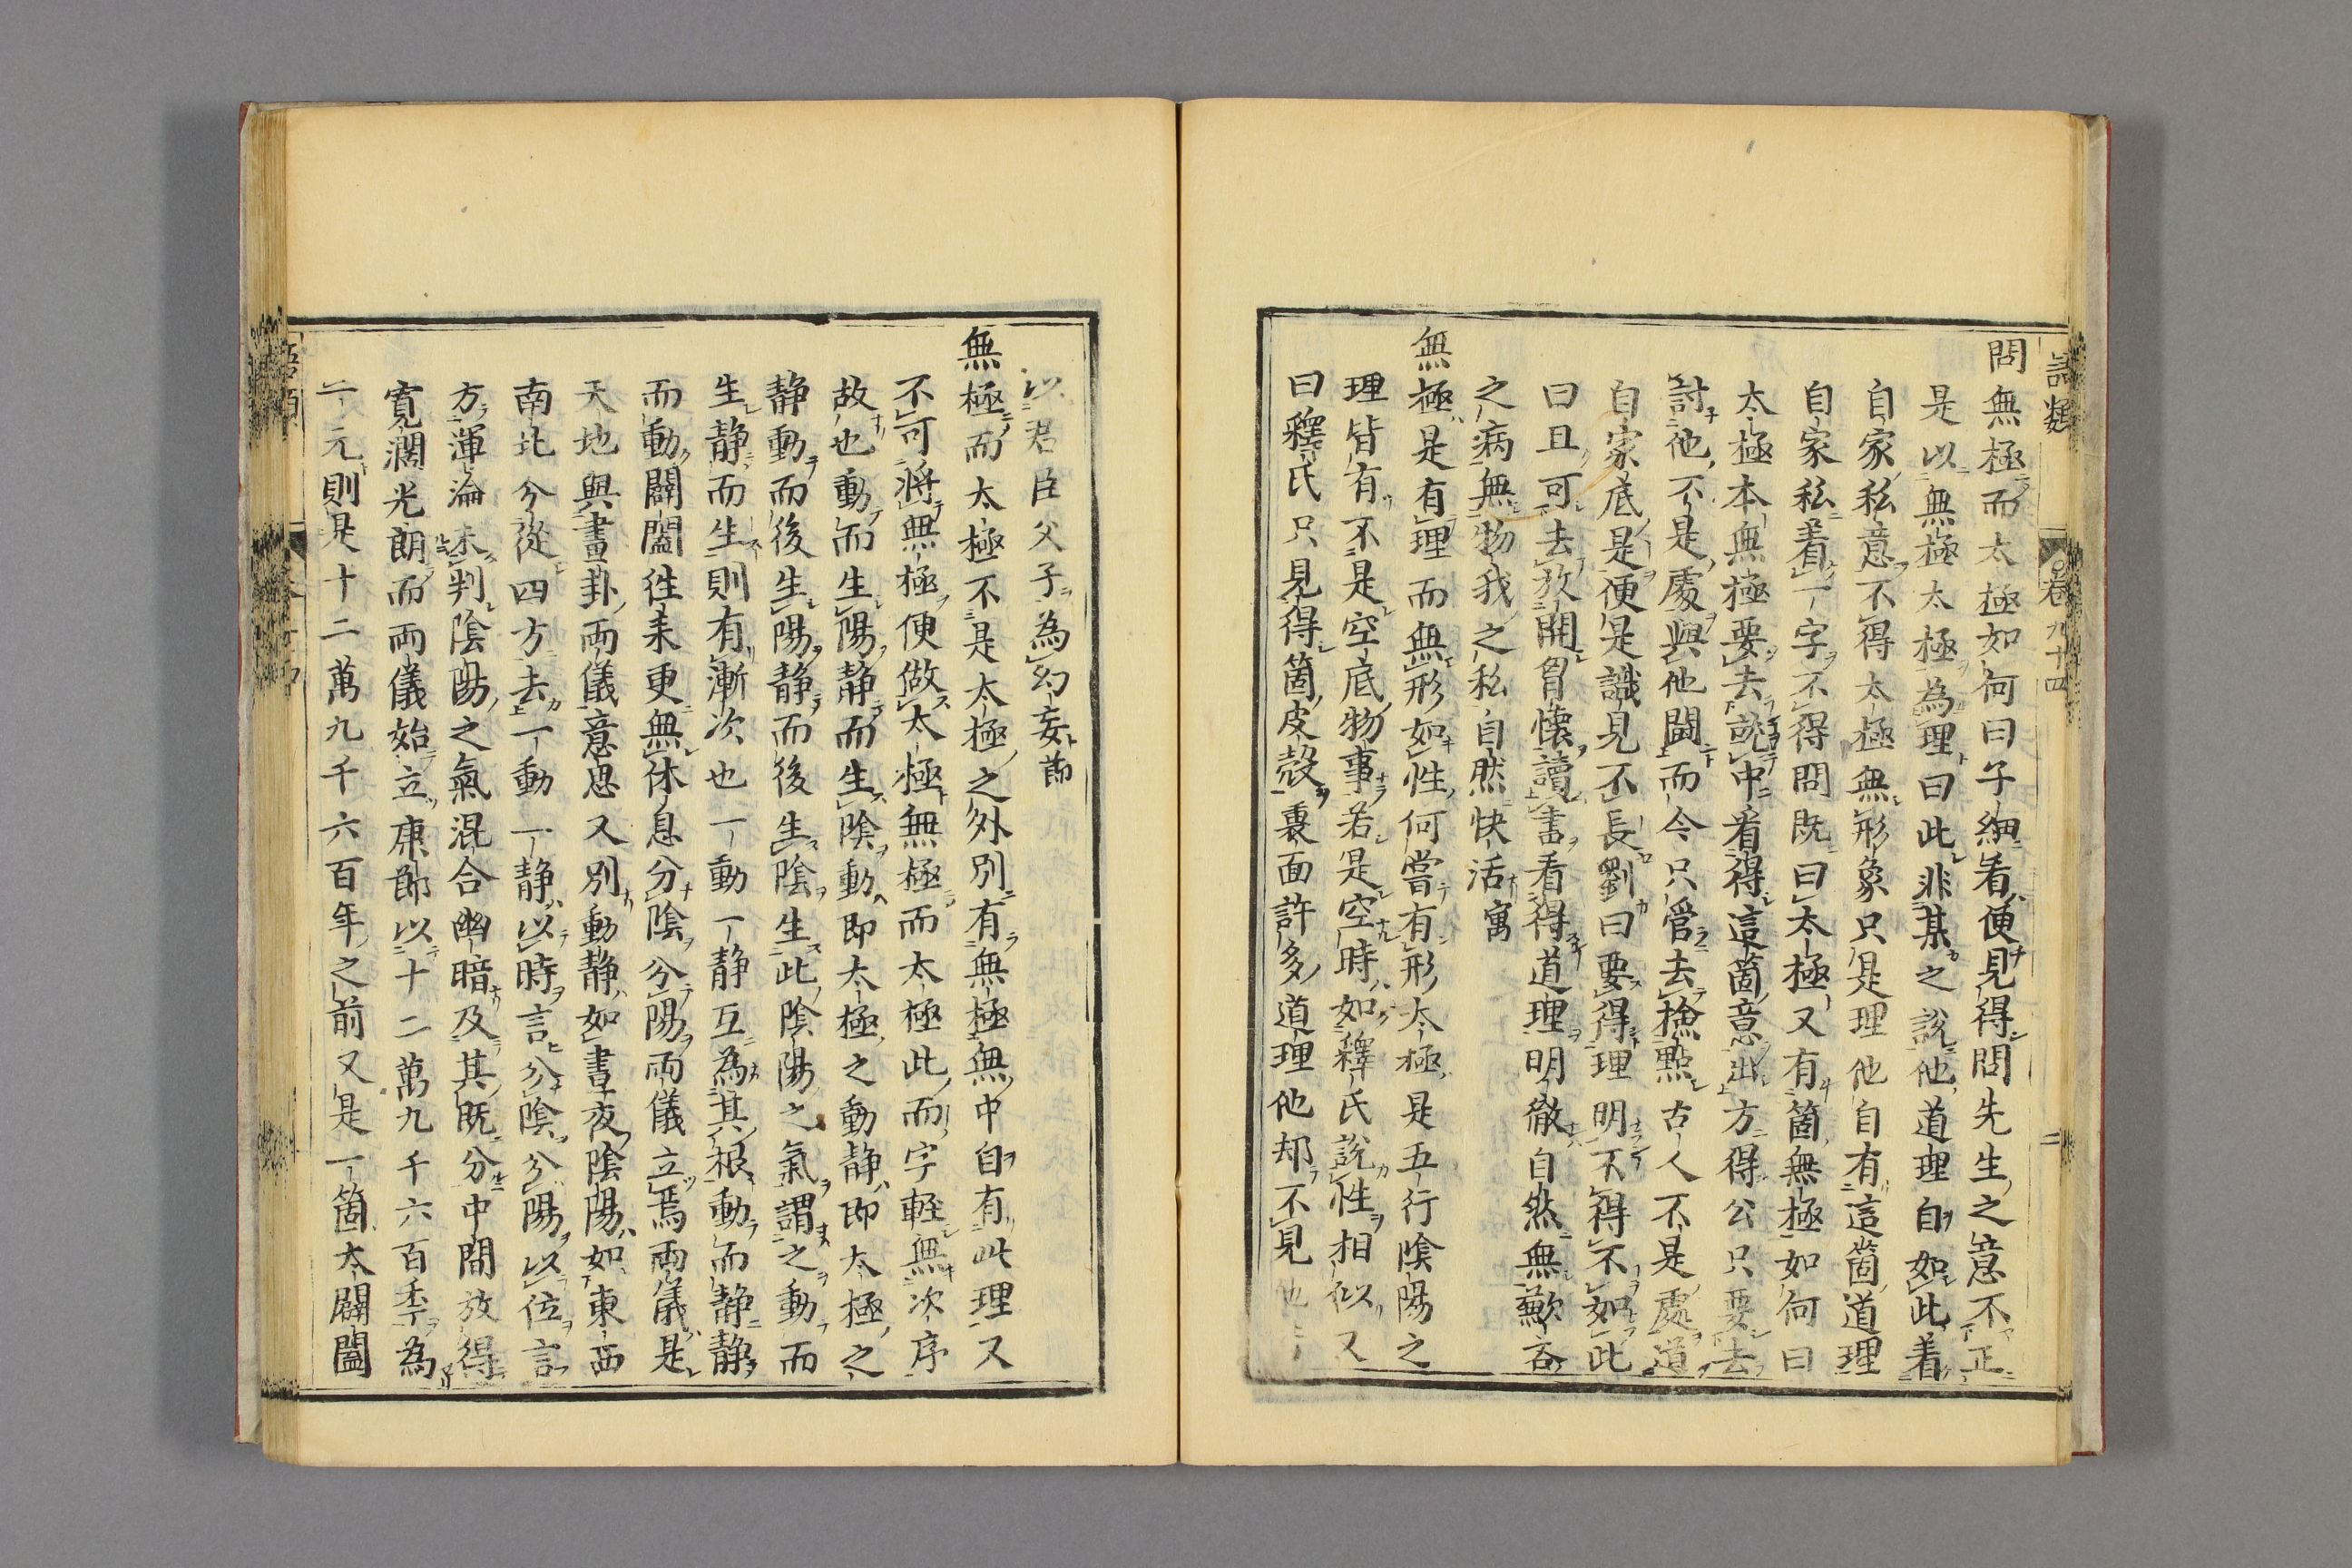 語類
卷九十四
二
問無極而太極如何曰子細看便見得問先生之意不正
是以無極太極為理曰此非某之說他道理自如此着
自家私意不得太極無形象只是理他自有這箇道理
自家私着一字不得問既曰太極又有箇無極如何曰
太極本無極要去說中看得這箇意出方得公只要去
討他不是處與他鬪而今只管去撿點古人不是處道
自家底是便是識見不長劉曰要得理明不得不如此
曰且可去放開胷懷讀書看得道理明徹自然無歉吝
之病無物我之私自然快活寓
無極是有理而無形如性何嘗有形太極是五行陰陽之
理皆有不是空底物事若是空時如釋氏說性相似又
曰釋氏只見得箇皮殼裏面許多道理他却不見他
以君臣父子為幻妄節
無極而太極不是太極之外別有無極無中自有此理又
不可將無極便做太極無極而太極此而字輕無次序
故也動而生陽静而生陰動即太極之動静即太極之
静動而後生陽静而後生陰生此陰陽之氣謂之動而
生静而生則有漸次也一動一静互為其根動而静静
而動闢闔徃来更無休息分陰分陽兩儀立焉兩儀是
天地與畫卦兩儀意思又別動静如晝夜陰陽如東西
南北分從四方去一動一静以時言分陰分陽以位言
方渾淪未判陰陽之氣混合幽暗及其既分中間放得
寬濶光朗而兩儀始立康節以十二萬九千六百年為
一元則是十二萬九千六百年之前又是一箇大闢闔